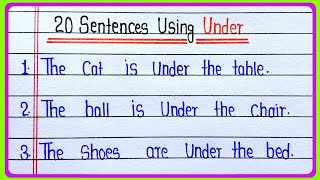 20 Sentences Using Under
1. The Cat is Under the table.
2. The ball is Under the chair.
3. The Shoes are Under the bed.